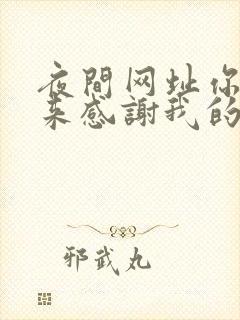 夜間网址你
来感謝我的
邪武丸